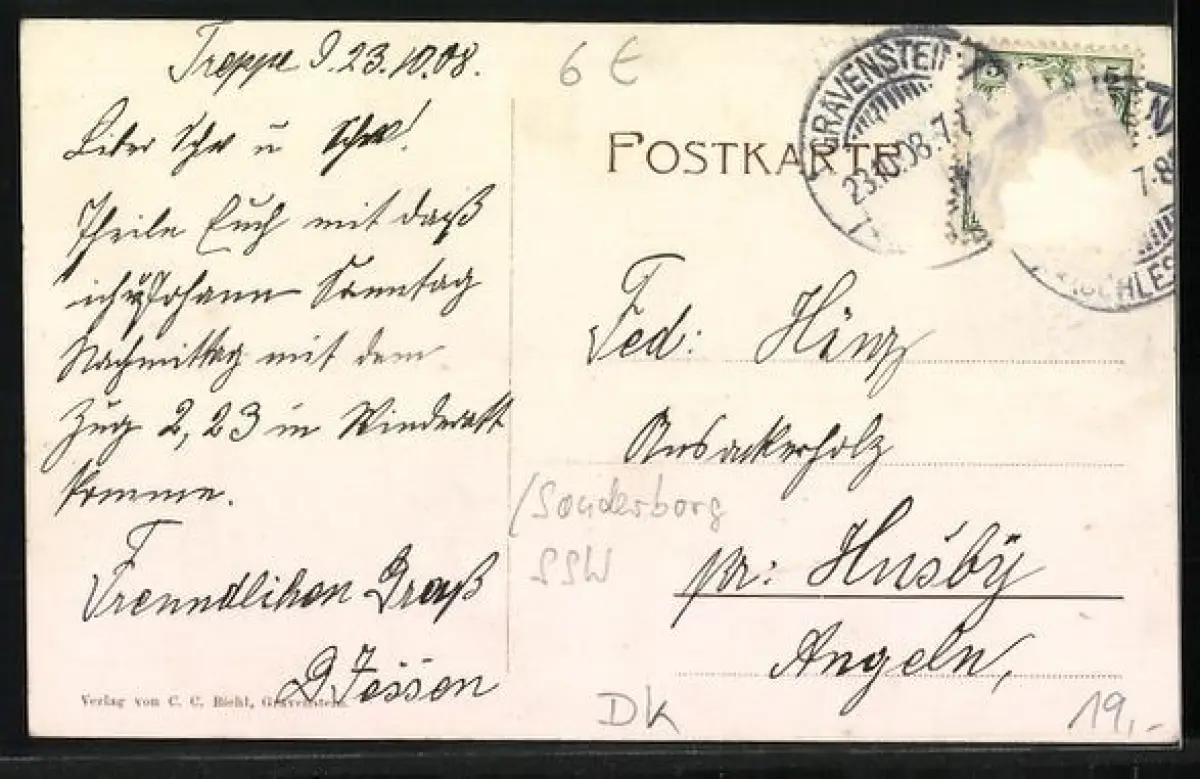 Treppe d. 23.10.08.
Liber Schw u Schw!
Theile Euch mit daß
ich u Johann Sonntag
Nachmittag mit dem
Zug 2,23 in Winderatt
komme.
Freundlichen Gruß
D. Jessen
Verlag von C. C. Biehl, Gravenstein.
6 t
POSTKARTE
GRAVENSTEIN
23.10.08.7-
5
7-8
SCHLES
Fed: Hänz
Ausackerholz
(Sonderborg
SSW
pr: Husby
Angeln,
DK
19,-